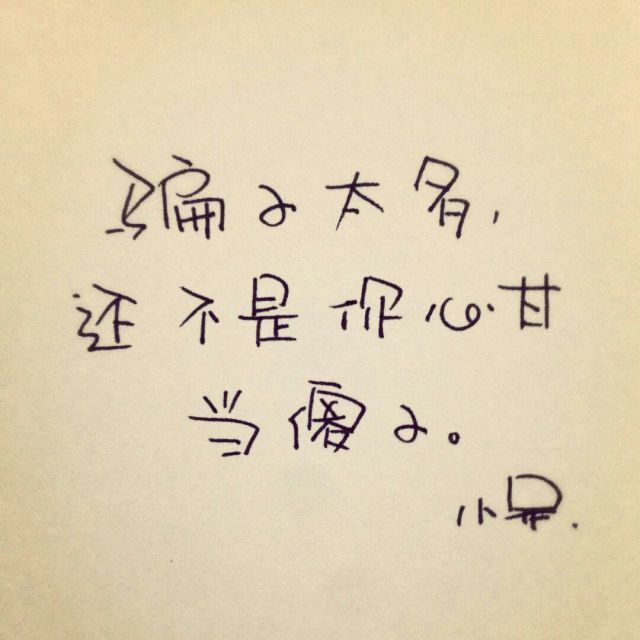 骗子太多，
还不是你心甘
当傻子。